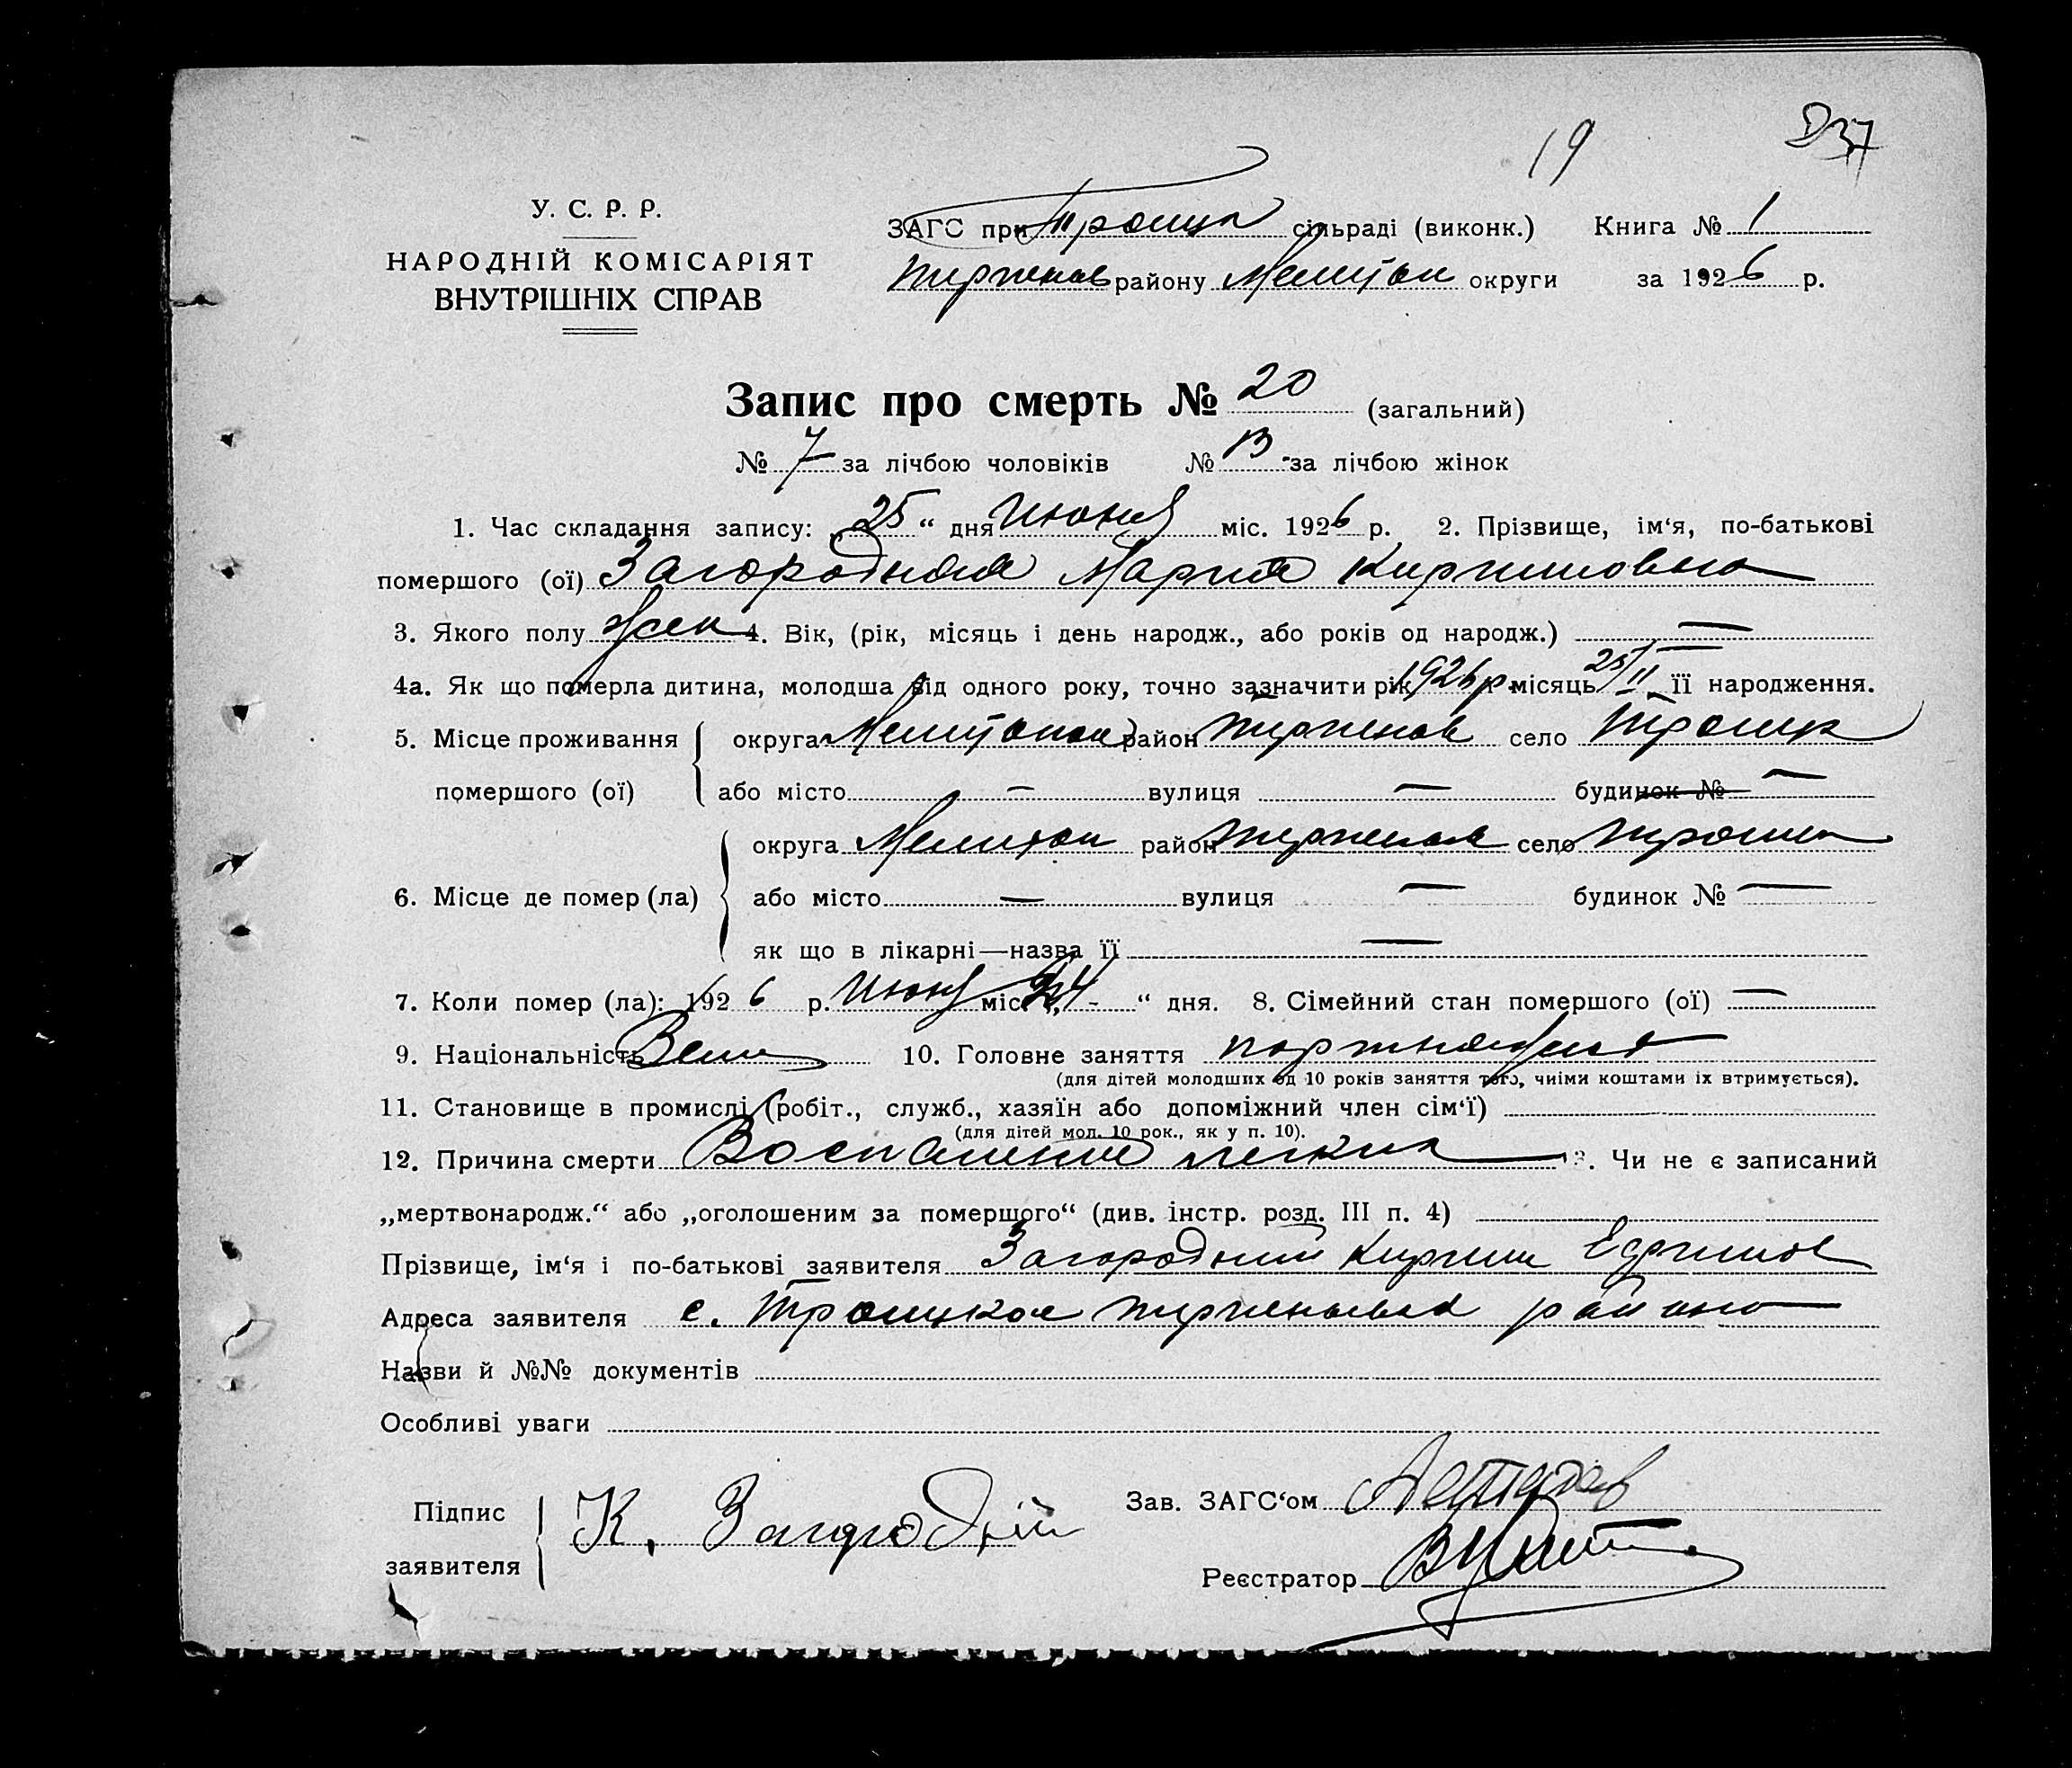 19
У. С. Р. Р.
НАРОДНІЙ КОМІСАРІЯТ
ВНУТРІШНІХ СПРАВ
ЗАГС при Троицк сільраді (виконк.) Книга № 1
району Мелитоп округи за 1926 р.
Запис про смерть № 20 (загальний)
№ 7 за лічбою чоловіків № 13 за лічбою жінок
1. Час складання запису: „25“ дня Июня міс. 1926 р. 2. Прізвище, ім‘я, по-батькові
помершого (ої) Загородняя Мария Кирилловна
3. Якого полу Жен 4. Вік, (рік, місяць і день народж., або років од народж.) —
4а. Як що померла дитина, молодша від одного року, точно зазначити рік 1926 р. місяць 25/II її народження.
5. Місце проживання округа район село Троицк
помершого (ої) або місто — вулиця — будинок № —
округа Мелитоп район село
6. Місце де помер (ла) або місто — вулиця — будинок № —
як що в лікарні—назва її —
7. Коли помер (ла): 1926 р. Июня міс. 24 “ дня. 8. Сімейний стан помершого (ої) —
9. Національність 10. Головне заняття
(для дітей молодших од 10 років заняття того, чиїми коштами їх втримується).
11. Становище в промислі (робіт., служб., хазяїн або допоміжний член сім‘ї)
(для дітей мол. 10 рок., як у п. 10).
12. Причина смерти Воспаление легких 13. Чи не є записаний
„мертвонародж.“ або „оголошеним за помершого“ (див. інстр. розд. III п. 4)
Прізвище, ім‘я і по-батькові заявителя Загородний Кирилл Ефимов
Адреса заявителя с. Троицкое района
Назви й №№ документів
Особливі уваги
Підпис
заявителя
К. Загородній
Зав. ЗАГС‘ом
Реєстратор